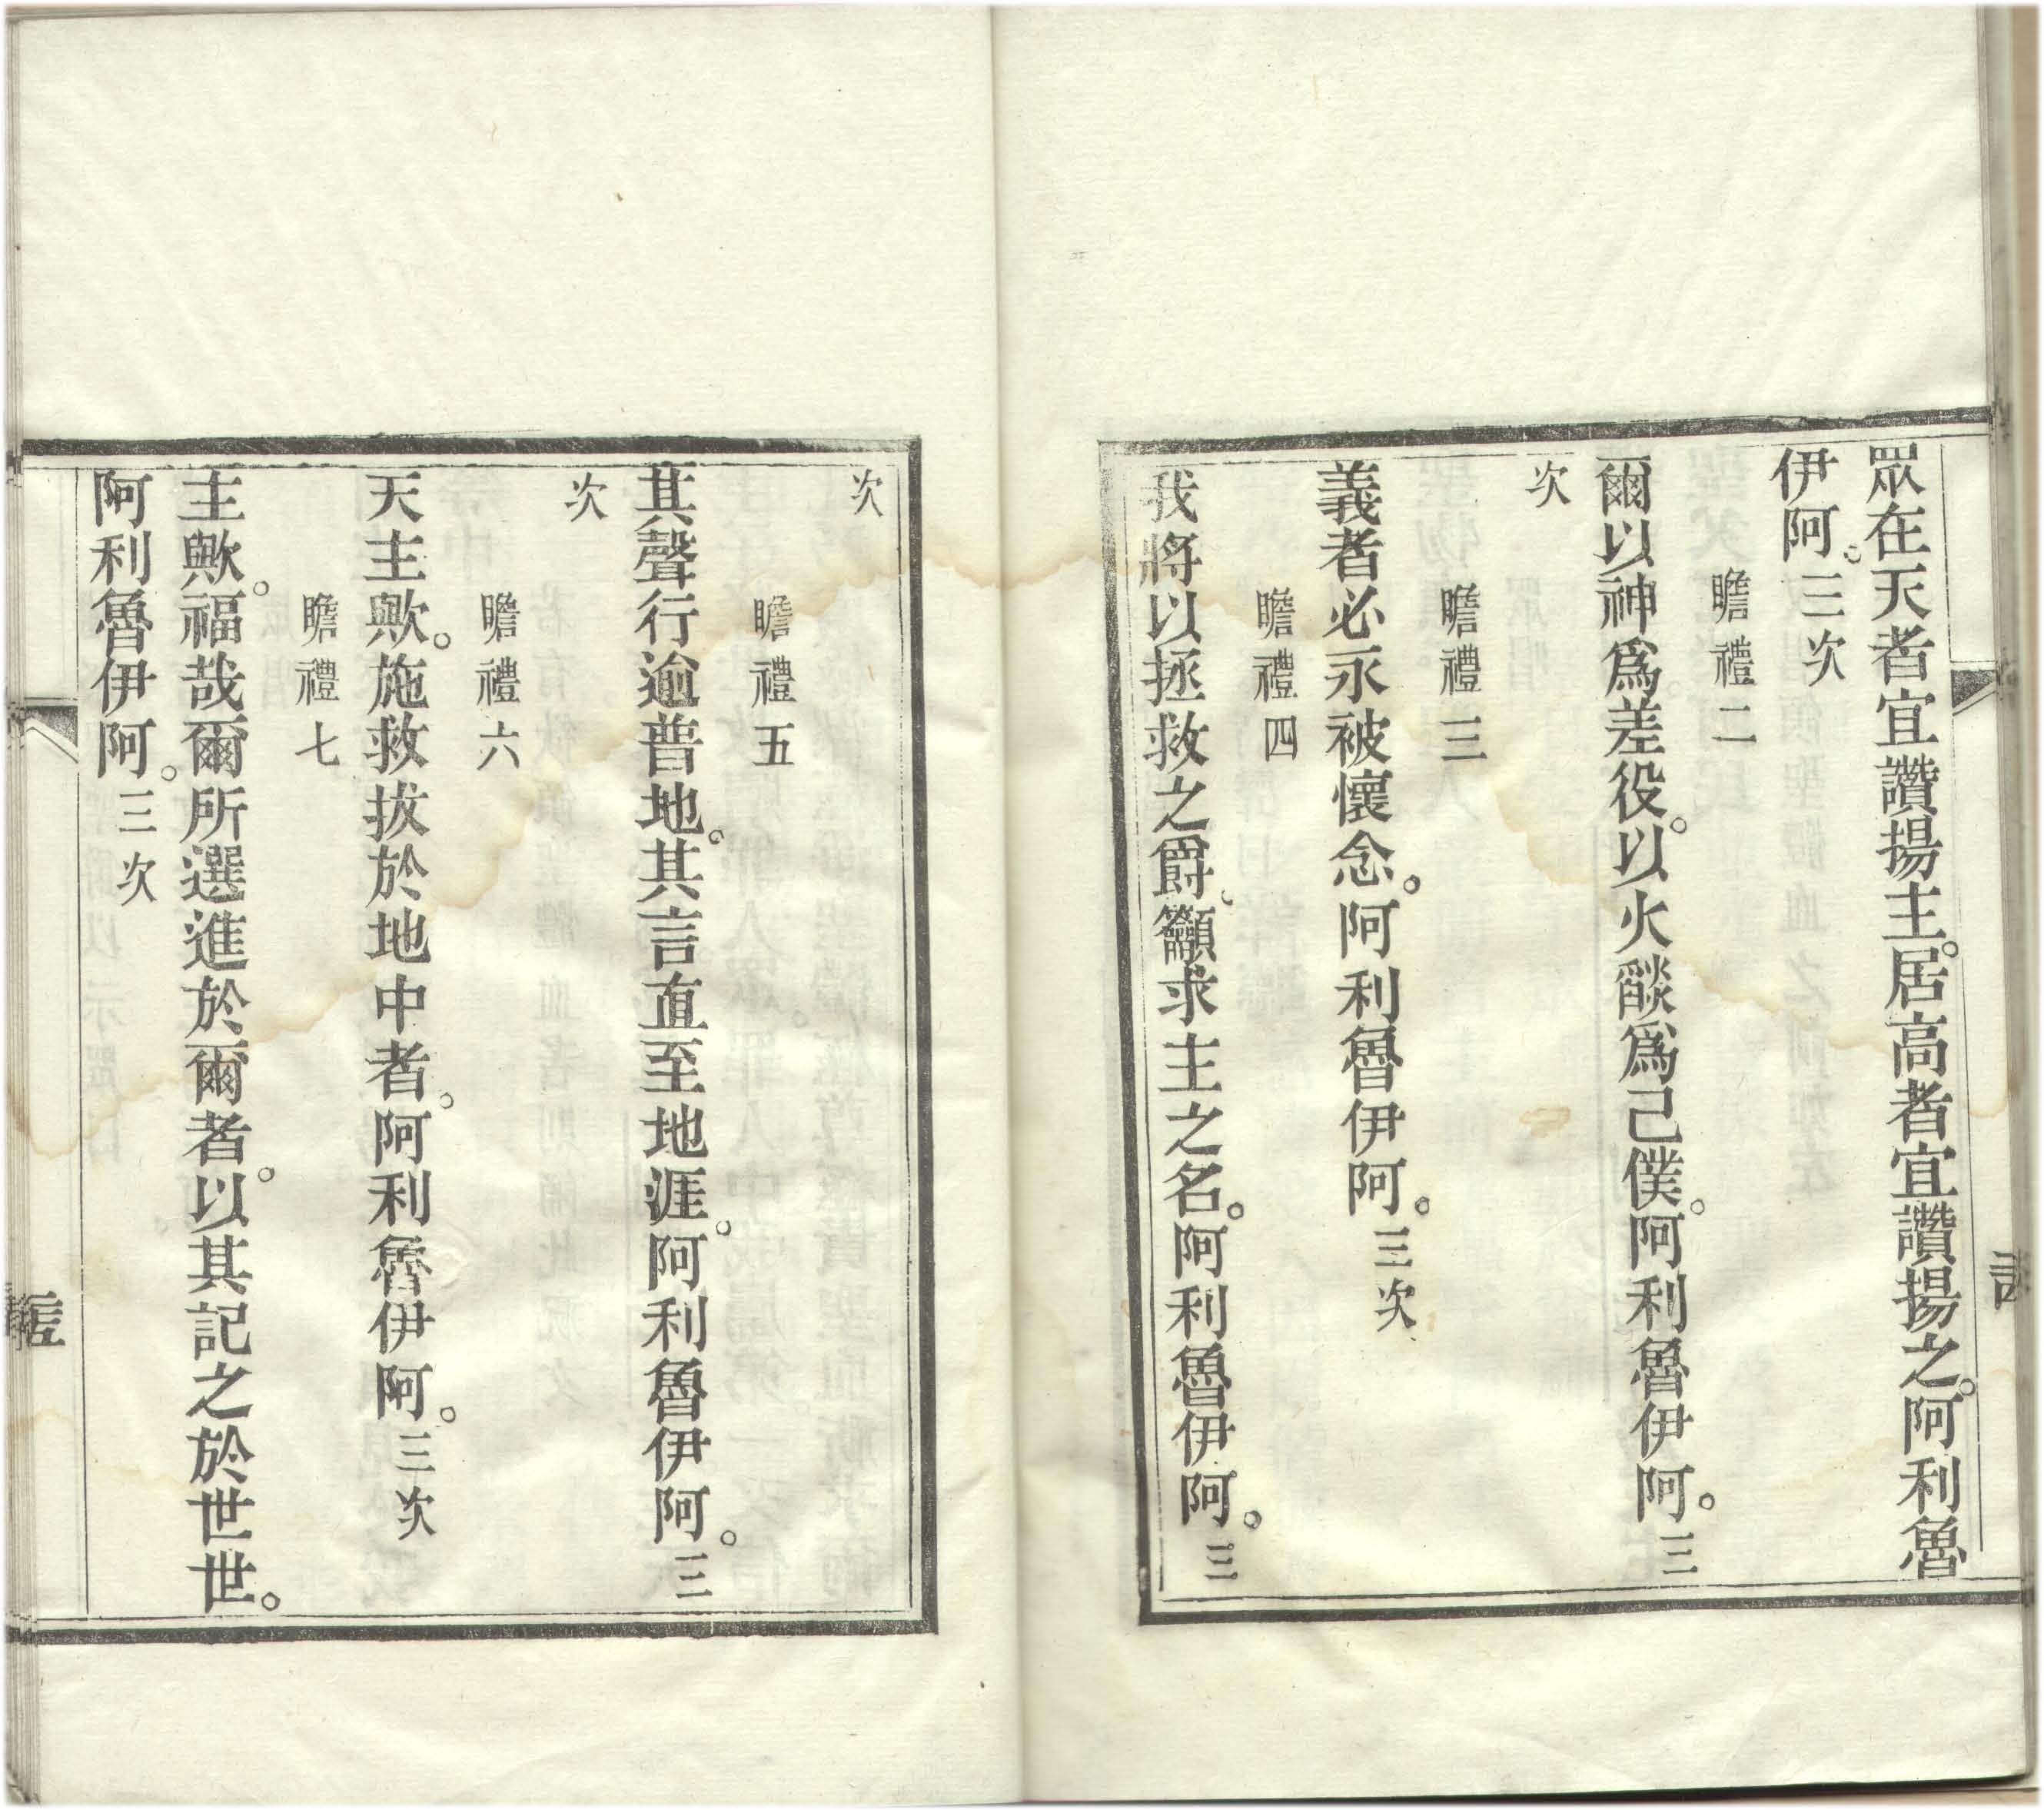 眾在天者宜讚揚主。居高者宜讚揚之。阿利魯
伊阿。三次
瞻禮二
爾以神爲差役。以火燄爲己僕。阿利魯伊阿。三
次
瞻禮三
義者必永被懷念。阿利魯伊阿。三次
瞻禮四
我將以拯救之爵。籲求主之名。阿利魯伊阿。三
次
瞻禮五
其聲行逾普地。其言直至地涯。阿利魯伊阿。三
次
瞻禮六
天主歟。施救拔於地中者。阿利魯伊阿。三次
瞻禮七
主歟。福哉爾所選進於爾者。以其記之於世世。
阿利魯伊阿。三次